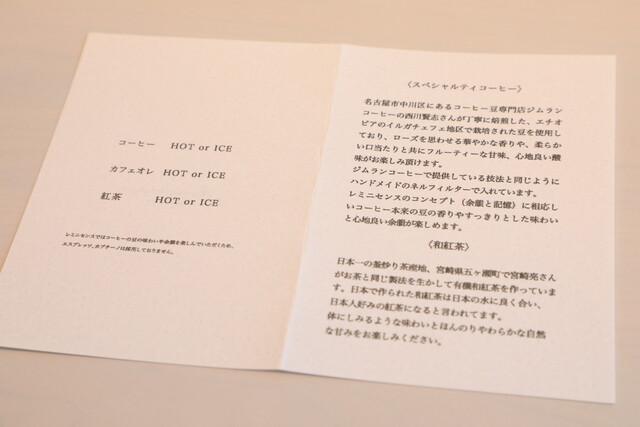 コーヒー HOT or ICE
カフェオレ HOT or ICE
紅茶 HOT or ICE
レミニセンスではコーヒーの豆の味わいや余韻を楽しんでいただくため、
エスプレッソ、カプチーノは採用しておりません。
〈スペシャルティコーヒー〉
名古屋市中川区にあるコーヒー豆専門店ジムラン
コーヒーの西川賢志さんが丁寧に焙煎した、エチオ
ピアのイルガチェフェ地区で栽培された豆を使用し
ており、ローズを思わせる華やかな香りや、柔らか
い口当たりと共にフルーティーな甘味、心地良い酸
味がお楽しみ頂けます。
ジムランコーヒーで提供している技法と同じように
ハンドメイドのネルフィルターで入れています。
レミニセンスのコンセプト（余韻と記憶）に相応し
いコーヒー本来の豆の香りやすっきりとした味わい
と心地良い余韻が楽しめます。
〈和紅茶〉
日本一の釜炒り茶産地、宮崎県五ヶ瀬町で宮崎亮さん
がお茶と同じ製法を生かして有機和紅茶を作っていま
す。日本で作られた和紅茶は日本の水に良く合い、
日本人好みの紅茶になると言われてます。
体にしみるような味わいとほんのりやわらかな自然
な甘みをお楽しみください。